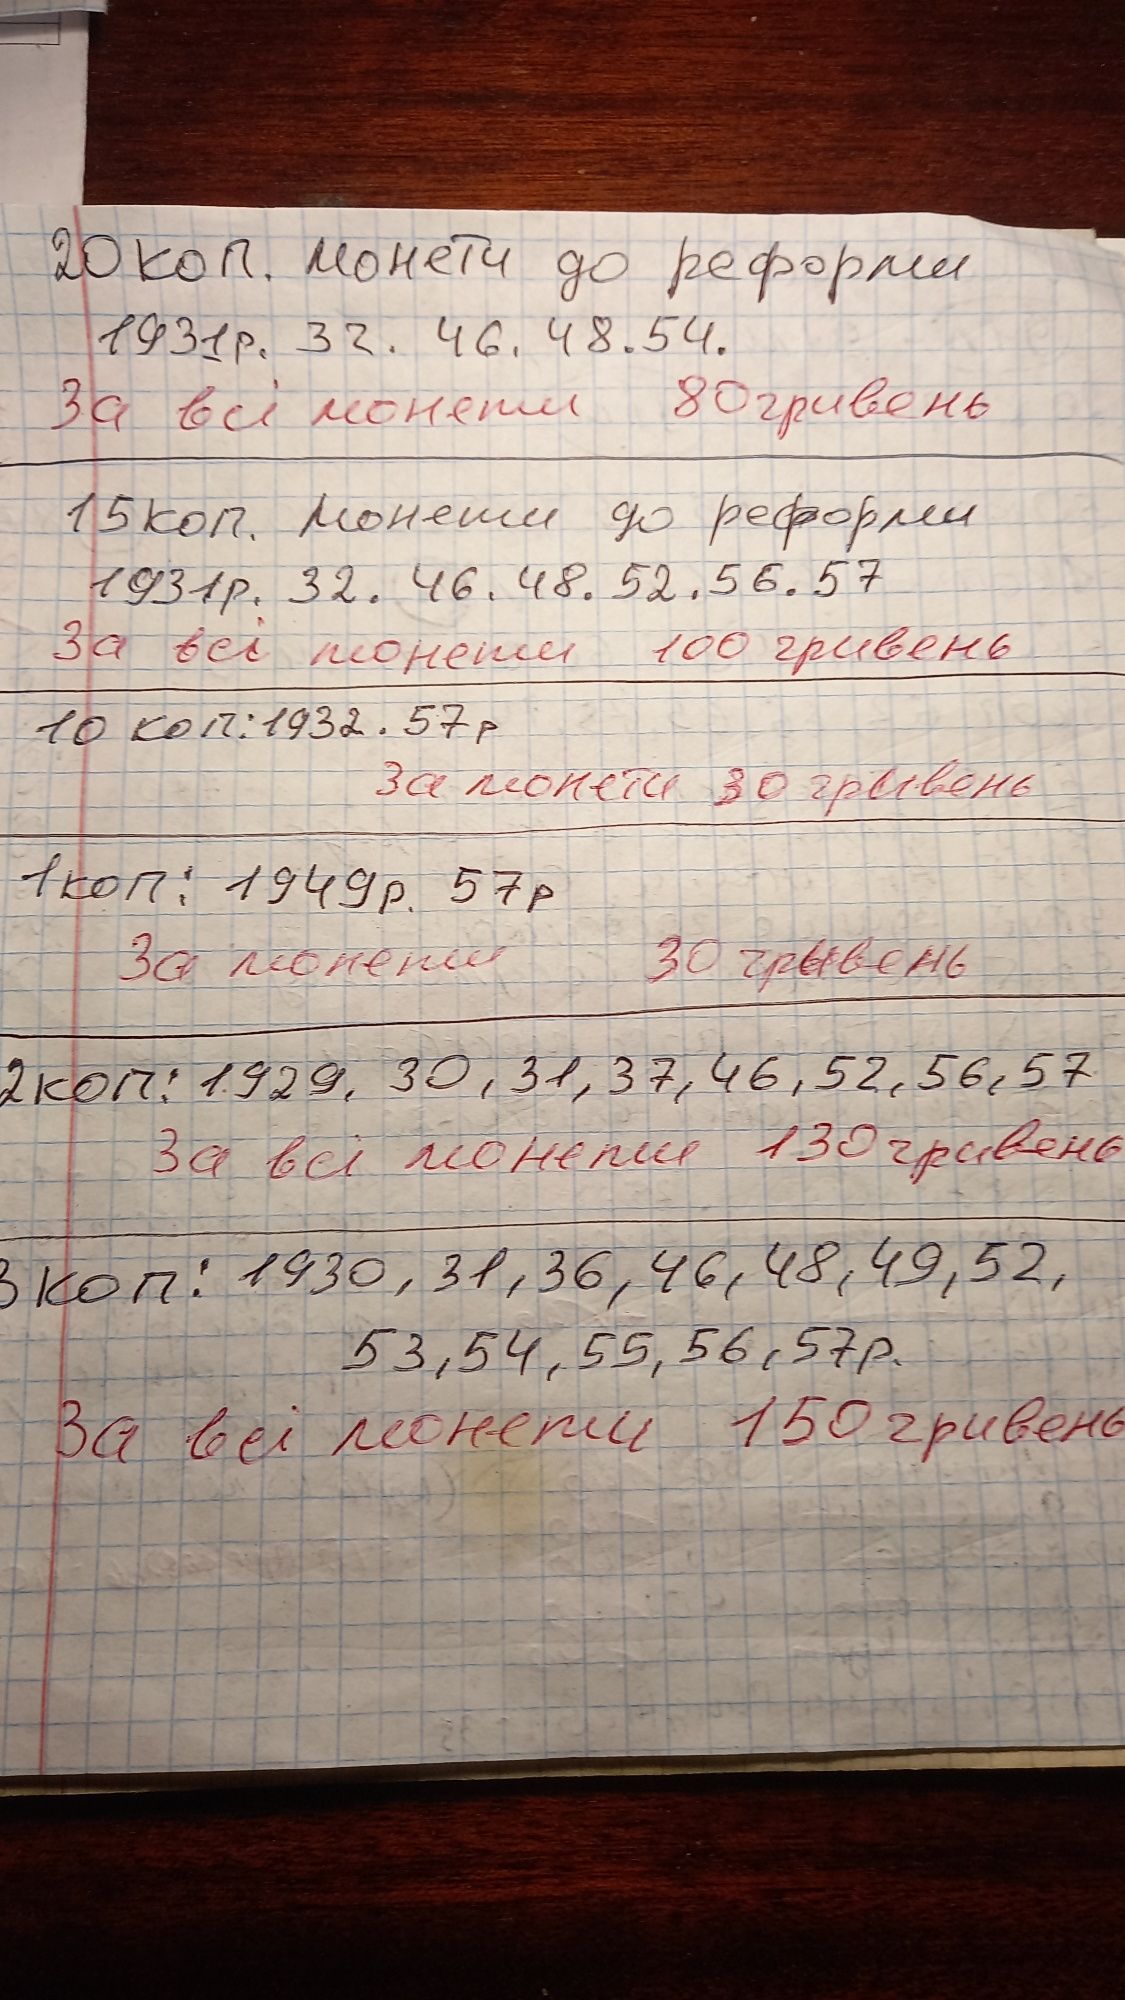 20 коп. монети до реформи
1931р. 32. 46. 48. 54.
За всі монети 80 гривень
15 коп. монети до реформи
1931р. 32. 46. 48. 52. 56. 57
За всі монети 100 гривень
10 коп: 1932. 57р
За монети 30 грывень
1 коп: 1949р. 57р
За монети 30 грывень
2 коп: 1929, 30, 31, 37, 46, 52, 56, 57
За всі монети 130 гривень
3 коп: 1930, 31, 36, 46, 48, 49, 52,
53, 54, 55, 56, 57р.
За всі монети 150 гривень